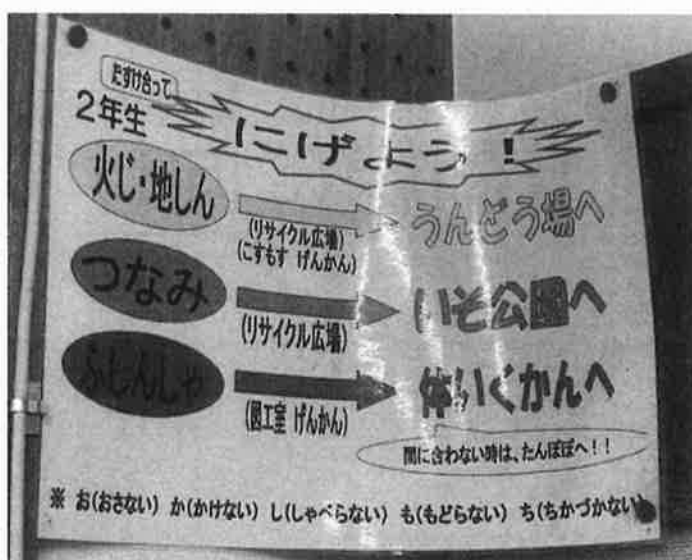 たすけ合って
2年生
にげよう!
火じ・地しん
(リサイクル広場)
(こすもす げんかん)
うんどう場へ
つなみ
(リサイクル広場)
いそ公園へ
ふしんしゃ
(図工室 げんかん)
体いくかんへ
間に合わない時は、たんぽぽへ!!
※ お(おさない) か(かけない) し(しゃべらない) も(もどらない) ち(ちかづかない)